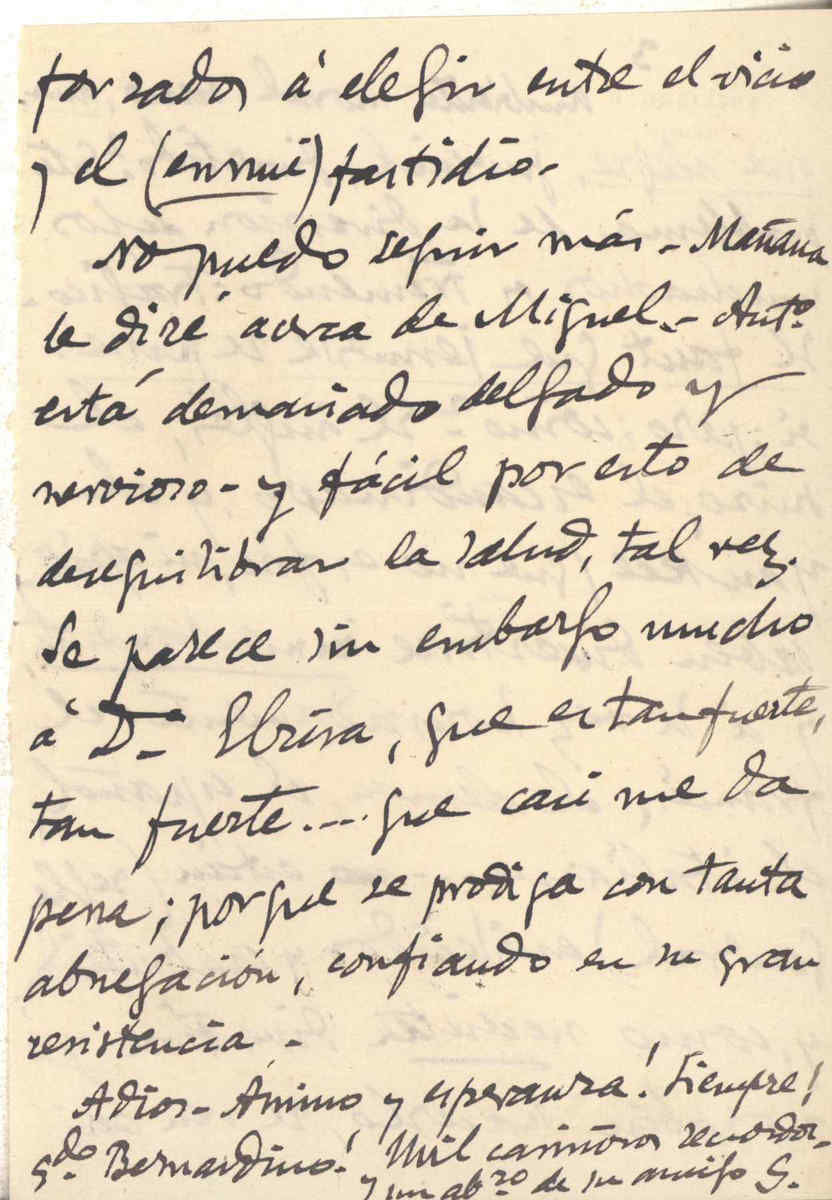 forzados á elegir entre el vicio
y el (ennui) fastidio-
No puedo seguir más - Mañana
le diré acerca de Miguel.- Antº
está demasiado delgado y
nervioso - y fácil por esto de
desequilibrar la salud, tal vez.
Se parece sin embargo mucho
á Dª Elvira, que es tan fuerte,
tan fuerte.... que casi me da
pena; porque se prodiga con tanta
abnegación, confiando en su gran
resistencia -
Adios - Ánimo y esperanza! Siempre!
Bernardino! Mil cariñosos recuerdos-
y un abzo de su amigo G.